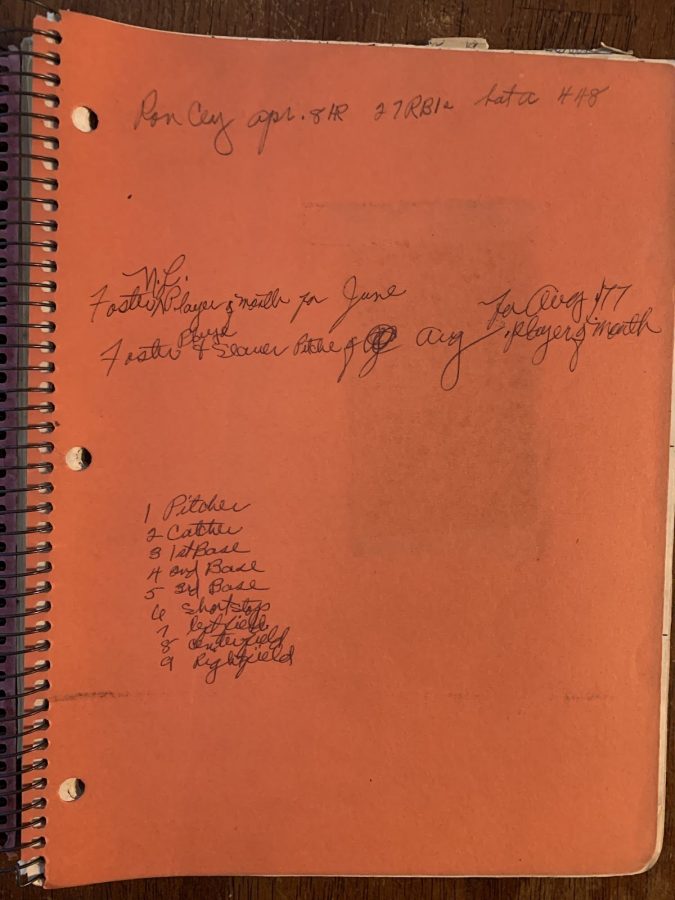 Ron Cey apr. 8 HR 27 RBIs bat a 448
N.L.
Foster Player of month for June
for Aug '77
Foster Player & Seaver Pitcher of Aug player of month
1 Pitcher
2 Catcher
3 1st Base
4 2nd Base
5 3rd Base
6 Shortstop
7 leftfield
8 Centerfield
9 Rightfield